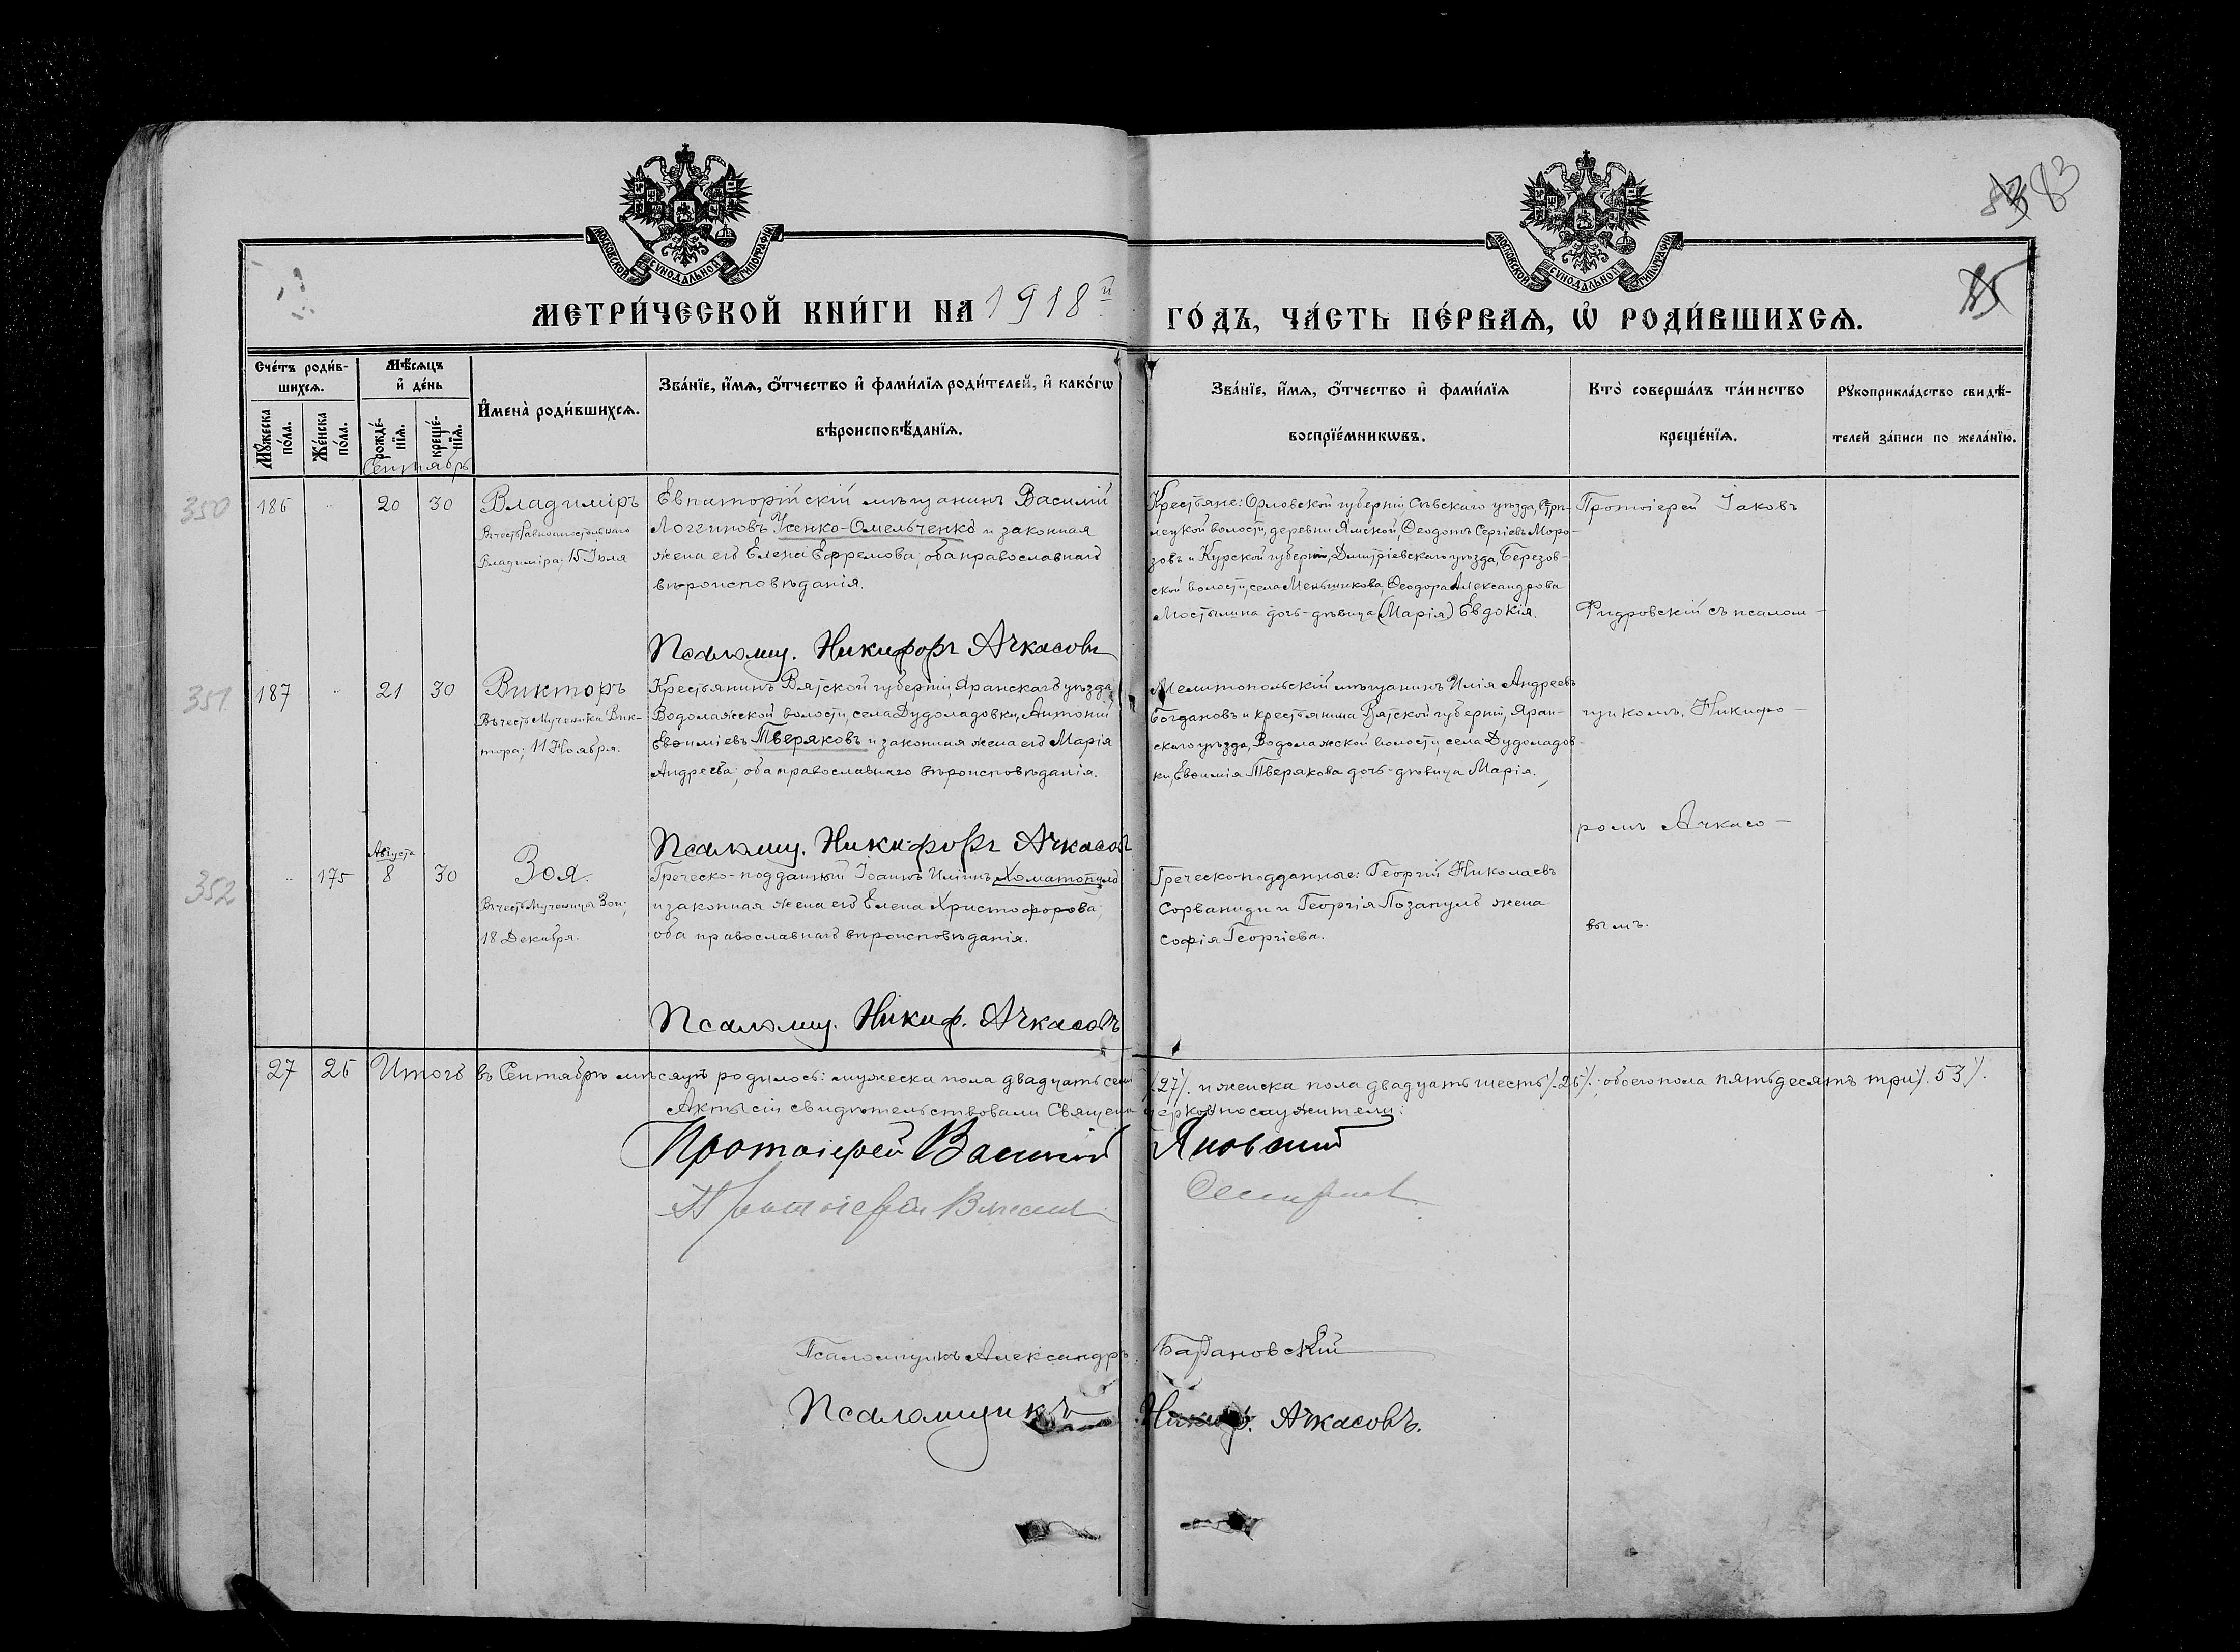 83
МОСКОВСКОЙ СѴНОДАЛЬНОЙ ТИПОГРАФІИ
МОСКОВСКОЙ СѴНОДАЛЬНОЙ ТИПОГРАФІИ
МЕТРИ́ЧЕСКОЙ КНИ́ГИ НА 1918й ГО́ДЪ, ЧА́СТЬ ПЕ́РВАѦ, Ѡ РОДИ́ВШИХСѦ.
Сче́тъ роди́в-
шихсѧ.
Мꙋ́жеска по́ла.
Же́нска по́ла.
Мѣ́сѧцъ
и҆ де́нь
рожде́-
нїѧ.
креще́-
нїѧ.
И҆мена̀ роди́вшихсѧ.
Зва́нїе, и҆́мѧ, ѻ҆́тчество и҆ фами́лїѧ роди́телей, и҆ како́гѡ
вѣроисповѣ́данїѧ.
Зва́нїе, и҆́мѧ, ѻ҆́тчество и҆ фами́лїѧ
воспрїе́мникѡвъ.
Кто̀ соверша́лъ та́инство
креще́нїѧ.
Рꙋкоприкла́дство свидѣ́-
телей за́писи по жела́нїю.
Сентябрь
350
186 " 20 30 Владиміръ
Въ честь Равноапостольнаго
Владиміра; 15 Іюля
Евпаторійскій мѣщанинъ Василій
Логгиновъ Усенко-Омельченко и законная
жена его Елена Ефремова; оба православнаго
вѣроисповѣданія.
Крестьяне: Орловской губерніи, Сѣвскаго уѣзда,
лецкой волости, деревни Ямской, Ѳеодотъ Сергіевъ Моро-
зовъ и Курской губерніи, Дмитріевскаго уѣзда, Березов-
ской волости, села Меньшикова, Ѳеодора Александрова
Мостылина дочь-дѣвица (Марія) Евдокія.
Протоіерей Іаковъ
Фидровскій съ псалом-
Псаломщ. Никифоръ Ачкасовъ
351
187 " 21 30 Викторъ
Въ честь Мученика Вик-
тора; 11 Ноября.
Крестьянинъ Вятской губерніи, Яранскаго уѣзда
Водолажской волости, села Дудоладовки, Антоній
Евѳиміевъ Тверяковъ и законная жена его Марія
Андреева; оба православнаго вѣроисповѣданія.
Мелитопольскій мѣщанинъ Илія Андреевъ
Богдановъ и крестьянина Вятской губерніи, Яран-
скаго уѣзда, Водолажской волости, села Дудоладов-
ки, Евѳимія Тверякова дочь-дѣвица Марія.
щикомъ Никифо-
ромъ Ачкасо-
Псаломщ. Никифоръ Ачкасов
352
Августа
" 175 8 30 Зоя.
Въ честь Мученицы Зои;
18 Декабря.
Греческо-подданный Іоаннъ Иліинъ Хоматопуло
и законная жена его Елена Христофорова;
оба православнаго вѣроисповѣданія.
Греческо-подданные: Георгій Николаевъ
Сорваниди и Георгія Позапулъ жена
Софія Георгіева.
вымъ.
Псаломщ. Никиф. Ачкасовъ
27 26 Итого въ Сентябрѣ мѣсяцѣ родилось: мужеска пола двадцать семь /.27/. и женска пола двадцать шесть /.26/.; обоего пола пятьдесятъ три /. 53 /.
Акты сіи свидѣтельствовали Священно церковнослужители:
Протоіерей Василій Яновскій
Протоіерей
Псаломщикъ Александръ Барановскій
Псаломщикъ Никиф. Ачкасовъ.